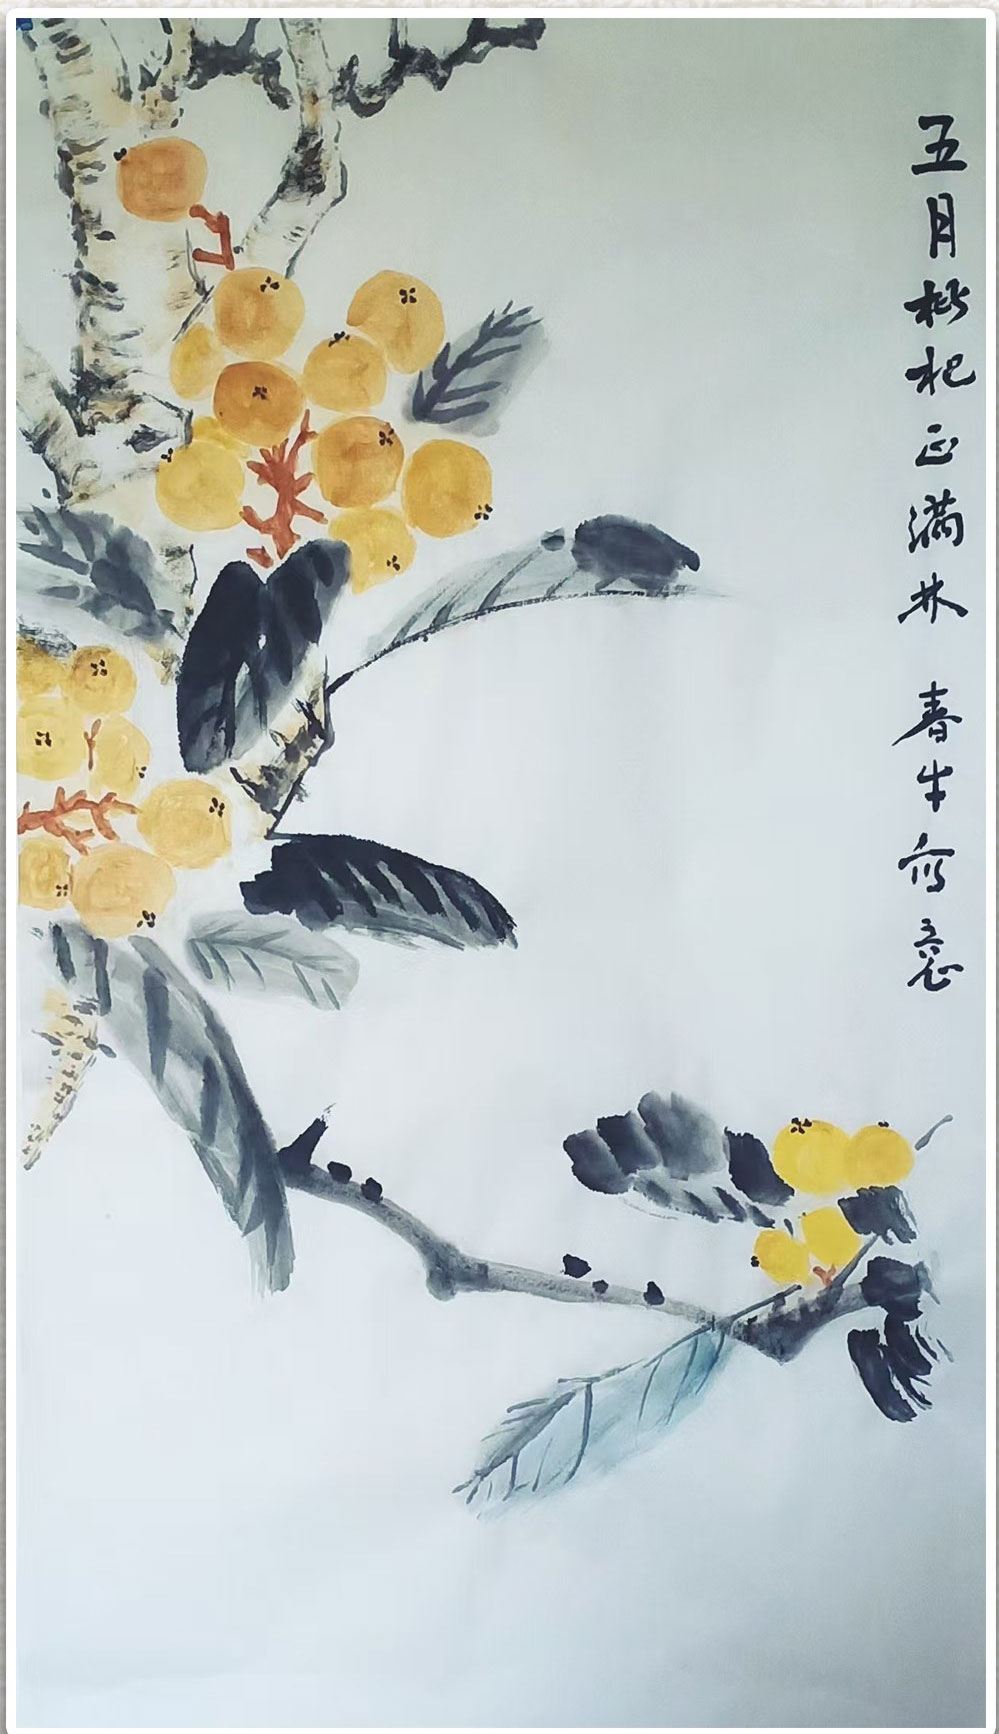 五月枇杷正满林 春生写意